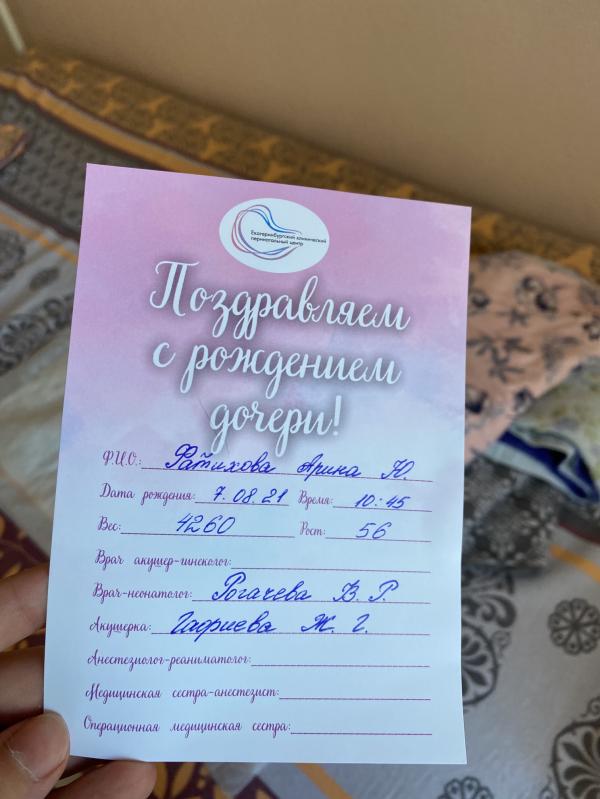 Екатеринбургский клинический
перинатальный центр
Поздравляем
с рождением
дочери!
Ф.И.О.: Фатихова Арина Ю.
Дата рождения: 7.08.21 Время: 10:45
Вес: 4260 Рост: 56
Врач акушер-гинеколог:
Врач-неонатолог: Рогачева В. Р.
Акушерка: Гафиева Ж. Г.
Анестезиолог-реаниматолог:
Медицинская сестра-анестезист:
Операционная медицинская сестра: